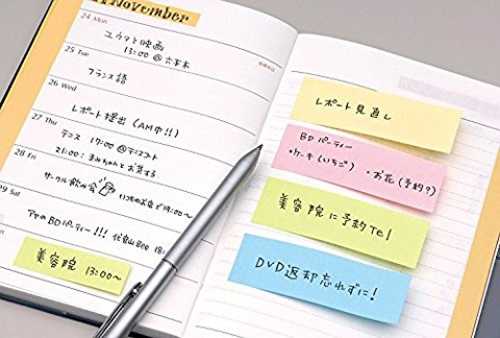 November
24 Mon
ユウタと映画
13:00 @ 六本木
25 Tue
フランス語
26 Wed
レポート提出 (AM中!!)
27 Thu
テニス 17:00 @テニスコート
21:00: まみちゃんとお茶する
28 Fri
サークル飲み会
いつものお店で19:00~
29 Sat
アヤのBDパーティー!!!
美容院 13:00~
レポート見直し
BDパーティー
・ケーキ(いちご) ・お花(予約?)
美容院に予約Tel!
DVD返却忘れずに!